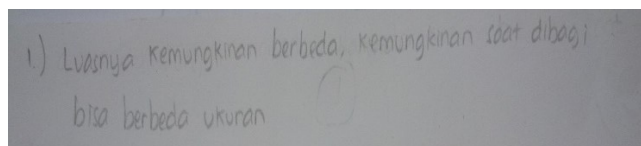 1.) Luasnya kemungkinan berbeda, kemungkinan saat dibagi
bisa berbeda ukuran